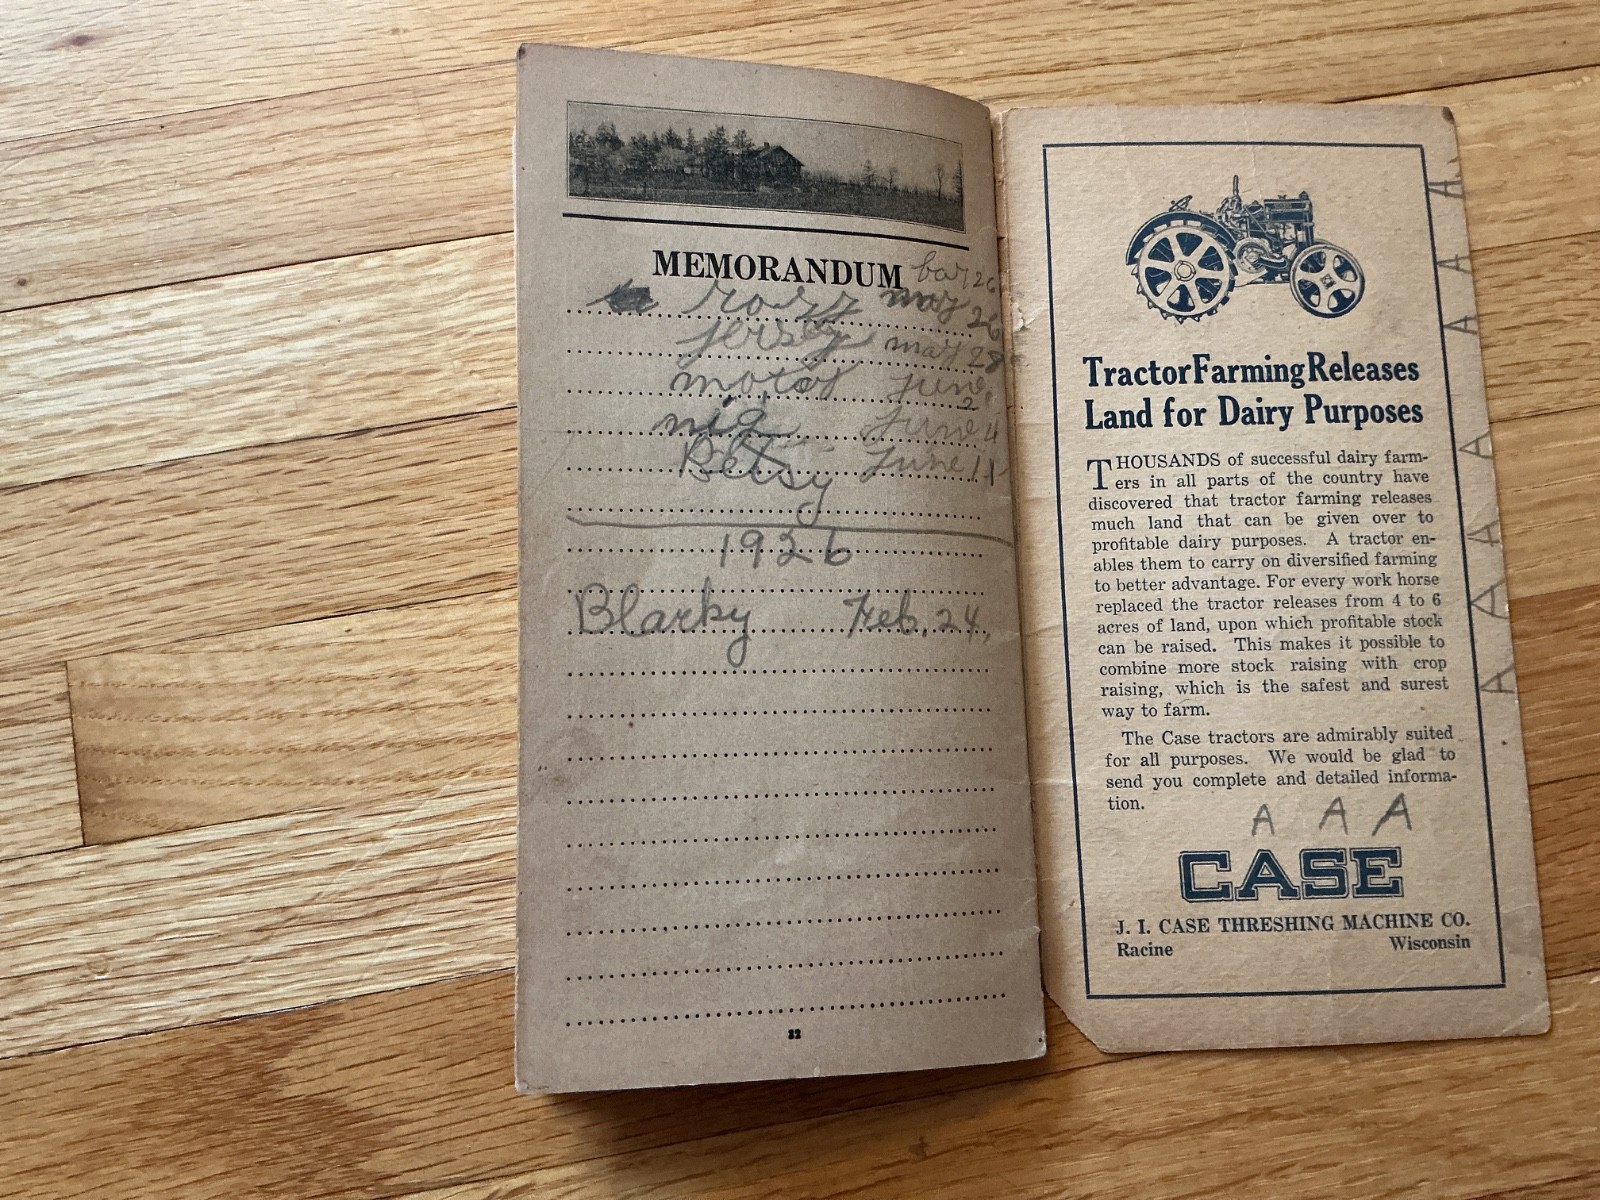 MEMORANDUM
26
rosy may 26
jersy may 28
motor June 2
nig June 4
Betsy June 11
1926
Blarky Feb. 24,
32
Tractor Farming Releases
Land for Dairy Purposes
THOUSANDS of successful dairy farm-
ers in all parts of the country have
discovered that tractor farming releases
much land that can be given over to
profitable dairy purposes. A tractor en-
ables them to carry on diversified farming
to better advantage. For every work horse
replaced the tractor releases from 4 to 6
acres of land, upon which profitable stock
can be raised. This makes it possible to
combine more stock raising with crop
raising, which is the safest and surest
way to farm.
The Case tractors are admirably suited
for all purposes. We would be glad to
send you complete and detailed informa-
tion.
A A A
CASE
J. I. CASE THRESHING MACHINE CO.
Racine Wisconsin
A
A
A
A
A
A
A
A